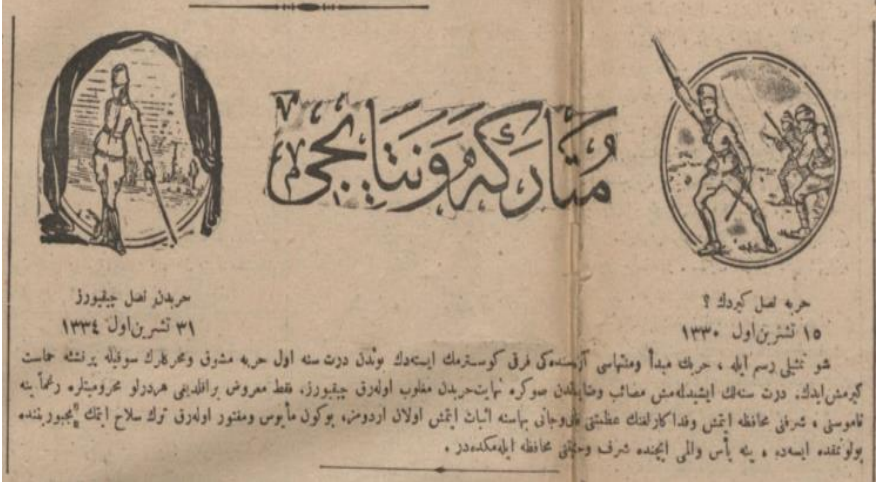 متاركه و نتايجى
حربه نصل كيردك ؟
١٥ تشرين اول ١٣٣٠
حربدن نصل چيقيورز
٣١ تشرين اول ١٣٣٤
شو تمثيلى رسم ايله ، حربك مبدأ ومنتهاسى آره‌سنده‌كى فرقى كوسترمك ايسته‌دك بوندن درت سنه اول حربه مشوق ومحركلرك سوقيله پرنشئه حماست
كيرمش ايدك. درت سنه‌لك ايشيدلمه‌مش مصائب صوكره نهايت حربدن مغلوب اوله‌رق چيقيورز، فقط معروض براقلديغى هردرلو محروميتلره رغماً ينه
ناموسنى ، شرفنى محافظه ايتمش وفداكارلغنك عظمتنى قان وجانى بهاسنه اثبات ايتمش اولان اردومز، بوكون مأيوس ومفتور اوله‌رق ترك سلاح ايتمك مجبوريتنده
بولونمقده ايسه‌ده ، ينه يأس والمى ايچنده شرف وحيثيتنى محافظه ايله‌مكده‌در .